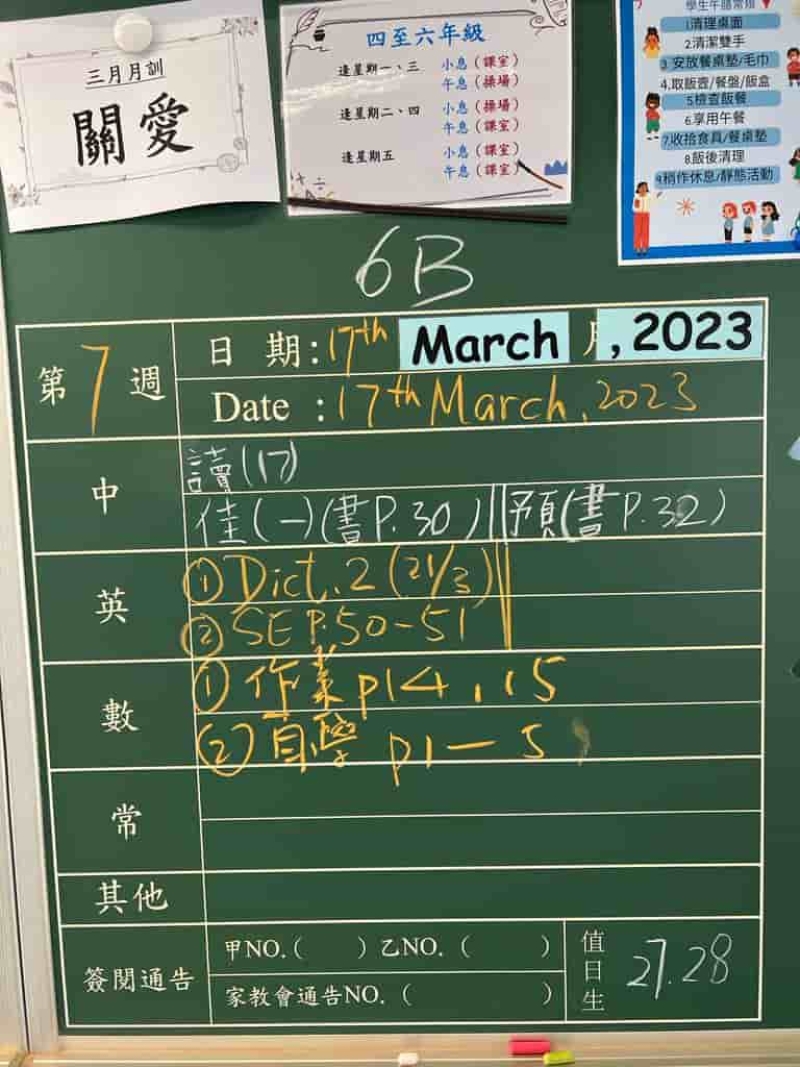 三月月訓
關愛
四至六年級
逢星期一、三 小息（課室）
午息（操場）
逢星期二、四 小息（操場）
午息（課室）
逢星期五 小息（課室）
午息（課室）
學生午膳常規
1清理桌面
2.清潔雙手
3 安放餐桌墊/毛巾
4.取飯壺/餐盤/飯盒
5檢查飯餐
6.享用午餐
7.收拾食具/餐桌墊
8.飯後清理
9稍作休息/靜態活動
6B
第7週
日 期:17th March 月,2023
Date :17th March,2023
中
讀(17)
佳(一)(書P.30)||預(書P.32)
英
①Dict.2(21/3)
②SE P.50-51
數
①作業p14,15
②自學 p1-5
常
其他
簽閱通告
甲NO.( )乙NO.( )
家教會通告NO.( )
值日生 27.28